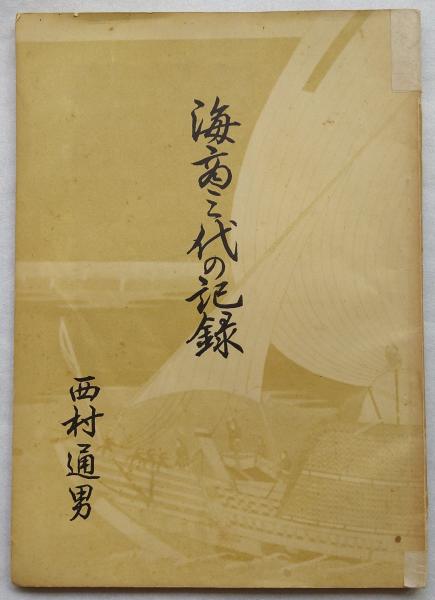 海商三代の記録
西村通男